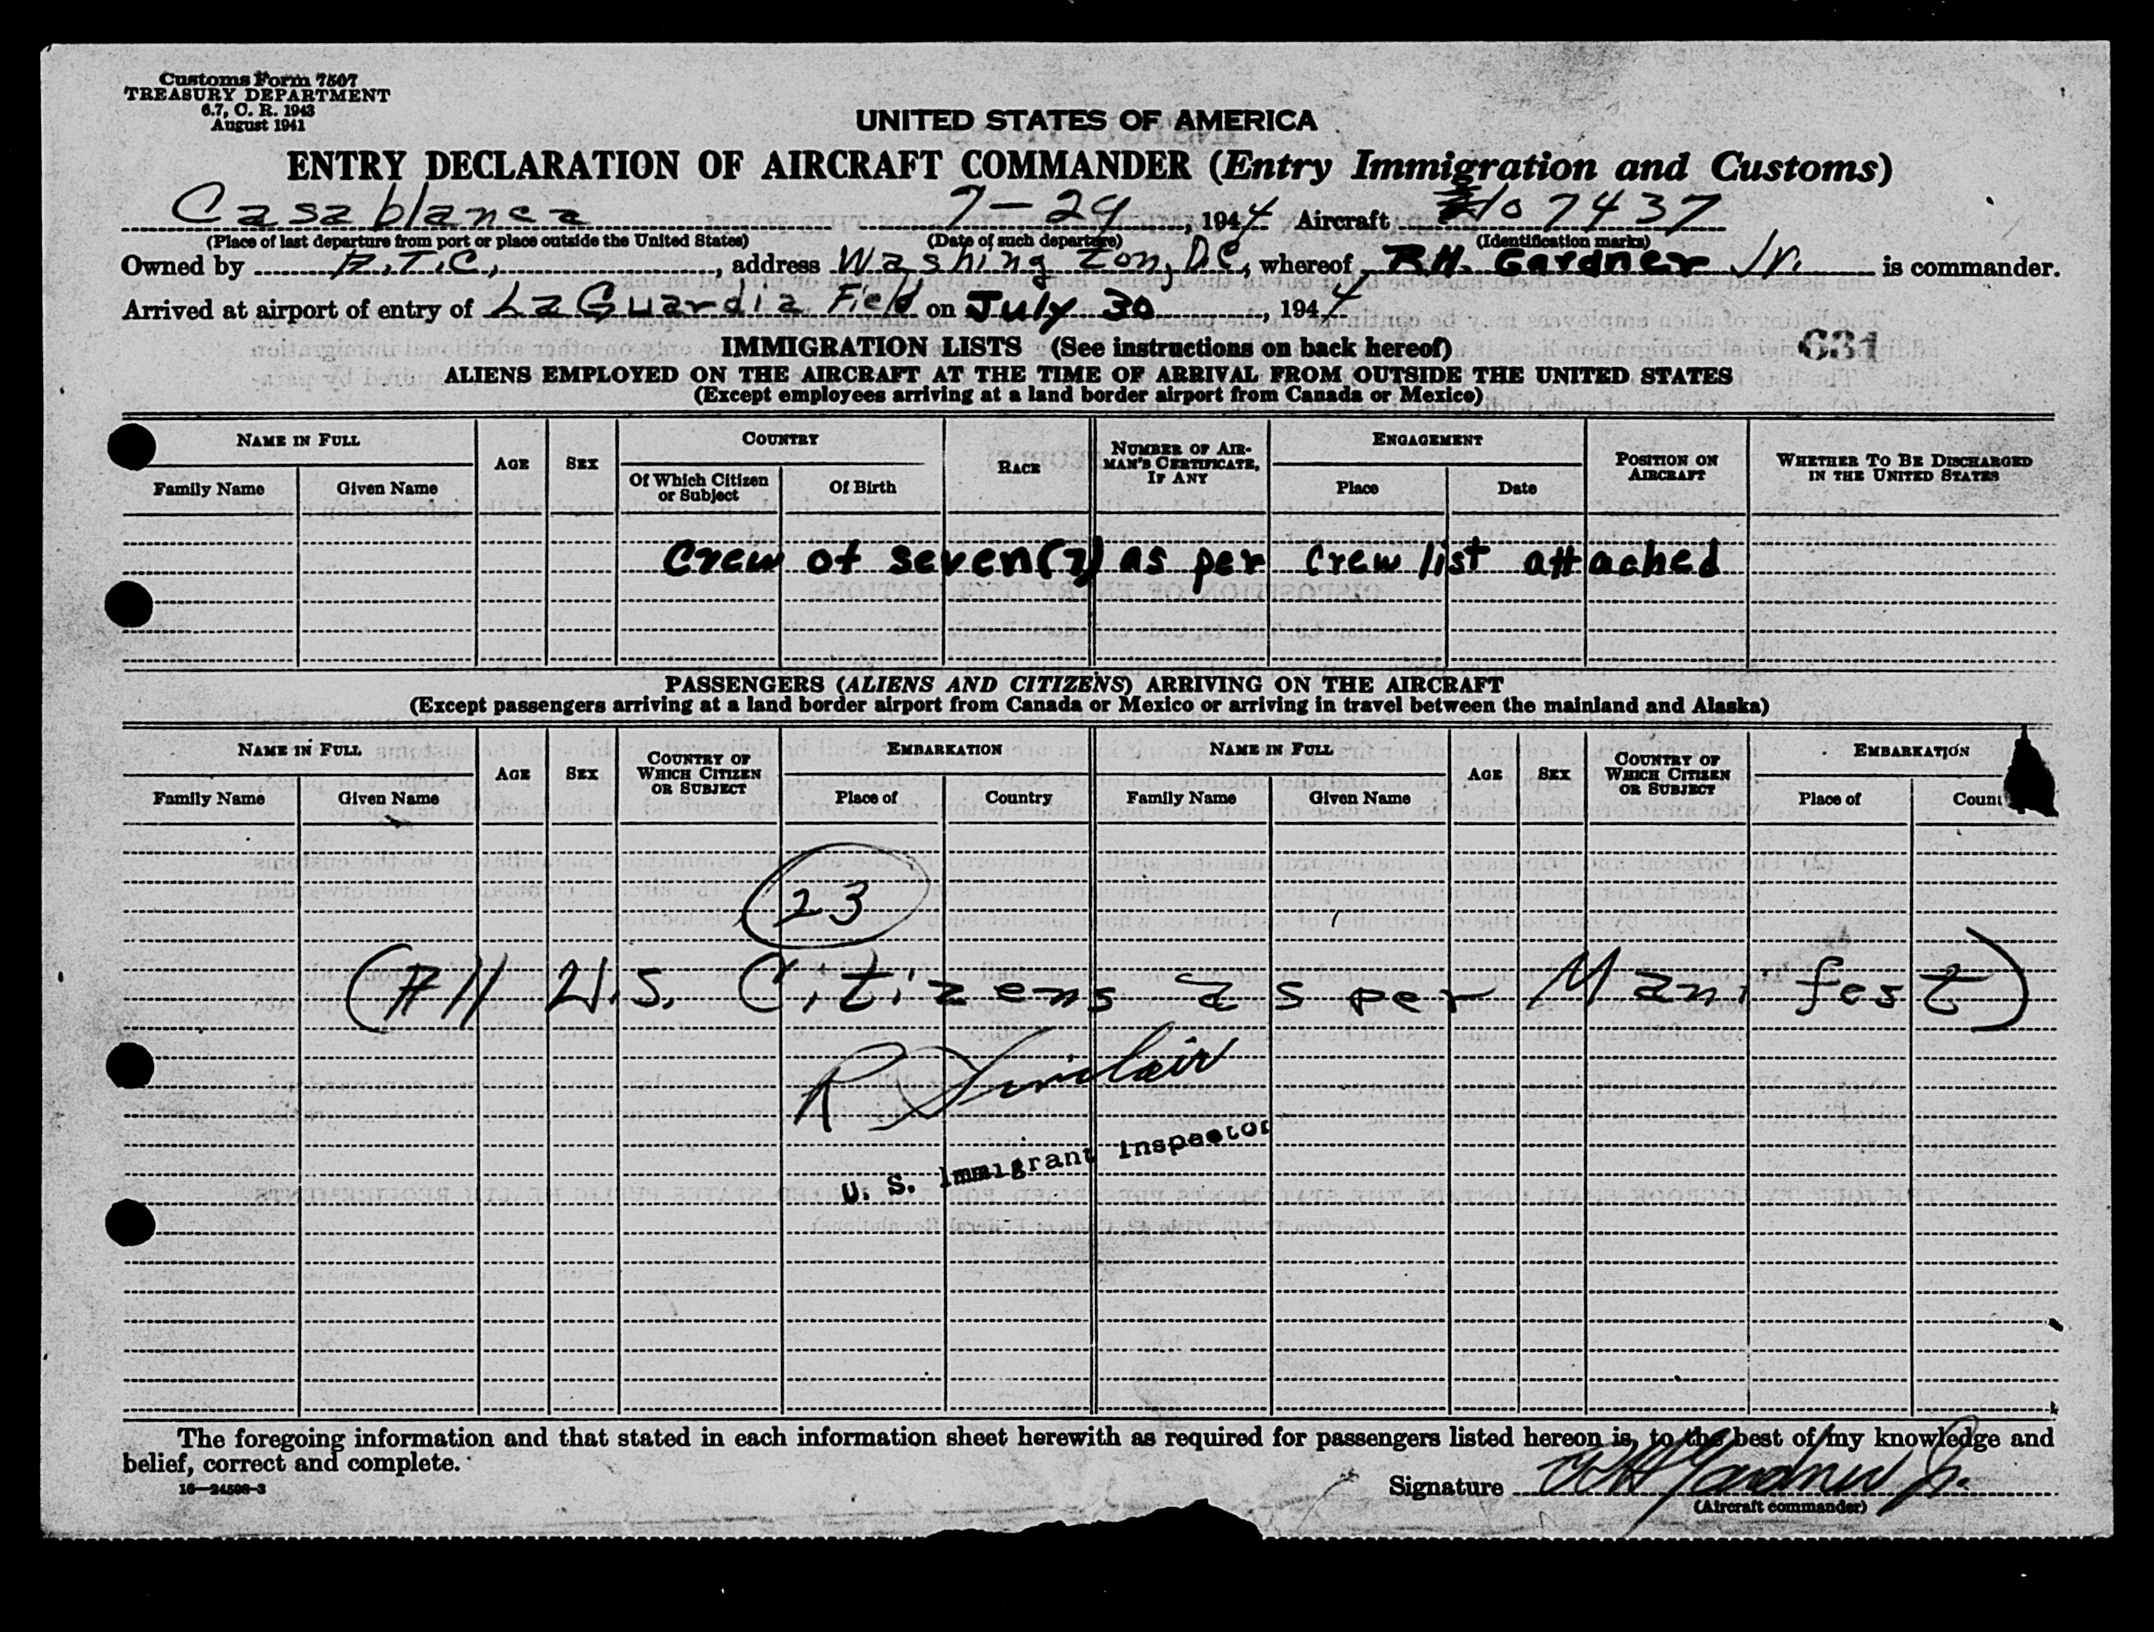 Customs Form 7507
TREASURY DEPARTMENT
6.7, C. R. 1943
August 1941
UNITED STATES OF AMERICA
ENTRY DECLARATION OF AIRCRAFT COMMANDER (Entry Immigration and Customs)
Casablanca 7-29, 1944 Aircraft 7437
(Place of last departure from port or place outside the United States) (Date of such departure) (Identification marks)
Owned by A.T.C., address Washington, D.C., whereof R.H. Gardner Jr. is commander.
Arrived at airport of entry of La Guardia Field on July 30, 1944
631
IMMIGRATION LISTS (See instructions on back hereof)
ALIENS EMPLOYED ON THE AIRCRAFT AT THE TIME OF ARRIVAL FROM OUTSIDE THE UNITED STATES
(Except employees arriving at a land border airport from Canada or Mexico)
NAME IN FULL AGE SEX COUNTRY RACE NUMBER OF AIRMAN'S CERTIFICATE, IF ANY ENGAGEMENT POSITION ON AIRCRAFT WHETHER TO BE DISCHARGED IN THE UNITED STATES
Family Name Given Name Of Which Citizen or Subject Of Birth Place Date
Crew of seven(7) as per Crew list attached
PASSENGERS (ALIENS AND CITIZENS) ARRIVING ON THE AIRCRAFT
(Except passengers arriving at a land border airport from Canada or Mexico or arriving in travel between the mainland and Alaska)
NAME IN FULL AGE SEX COUNTRY OF WHICH CITIZEN OR SUBJECT EMBARKATION NAME IN FULL AGE SEX COUNTRY OF WHICH CITIZEN OR SUBJECT EMBARKATION
Family Name Given Name Place of Country Family Name Given Name Place of Count
23
(All U.S. Citizens as per Manifest)
R Sinclair
U. S. Immigrant Inspector
The foregoing information and that stated in each information sheet herewith as required for passengers listed hereon is, to the best of my knowledge and
belief, correct and complete.
16—24598-3
Signature RH Gardner Jr.
(Aircraft commander)